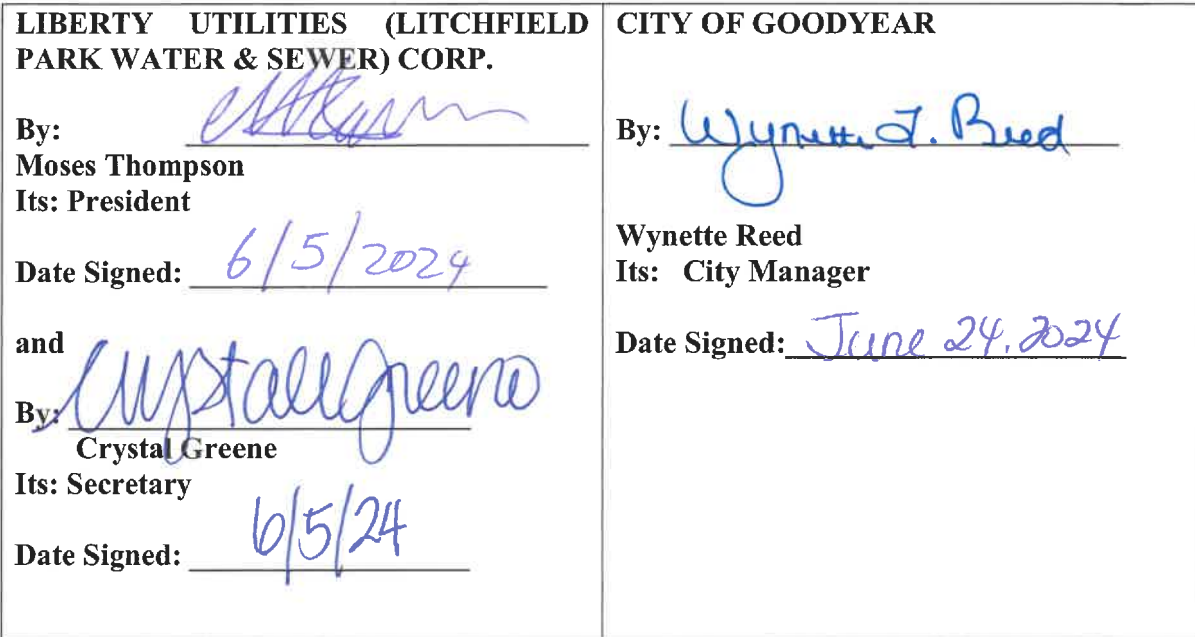 LIBERTY UTILITIES (LITCHFIELD
PARK WATER & SEWER) CORP.
By:
Moses Thompson
Its: President
Date Signed: 6/5/2024
and
By: Crystal Greene
Crystal Greene
Its: Secretary
Date Signed: 6/5/24
CITY OF GOODYEAR
By: Wynette F. Reed
Wynette Reed
Its: City Manager
Date Signed: June 24, 2024